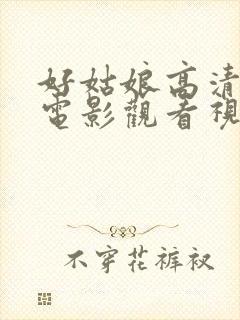 好姑娘高清
電影觀看視
不穿花裤衩